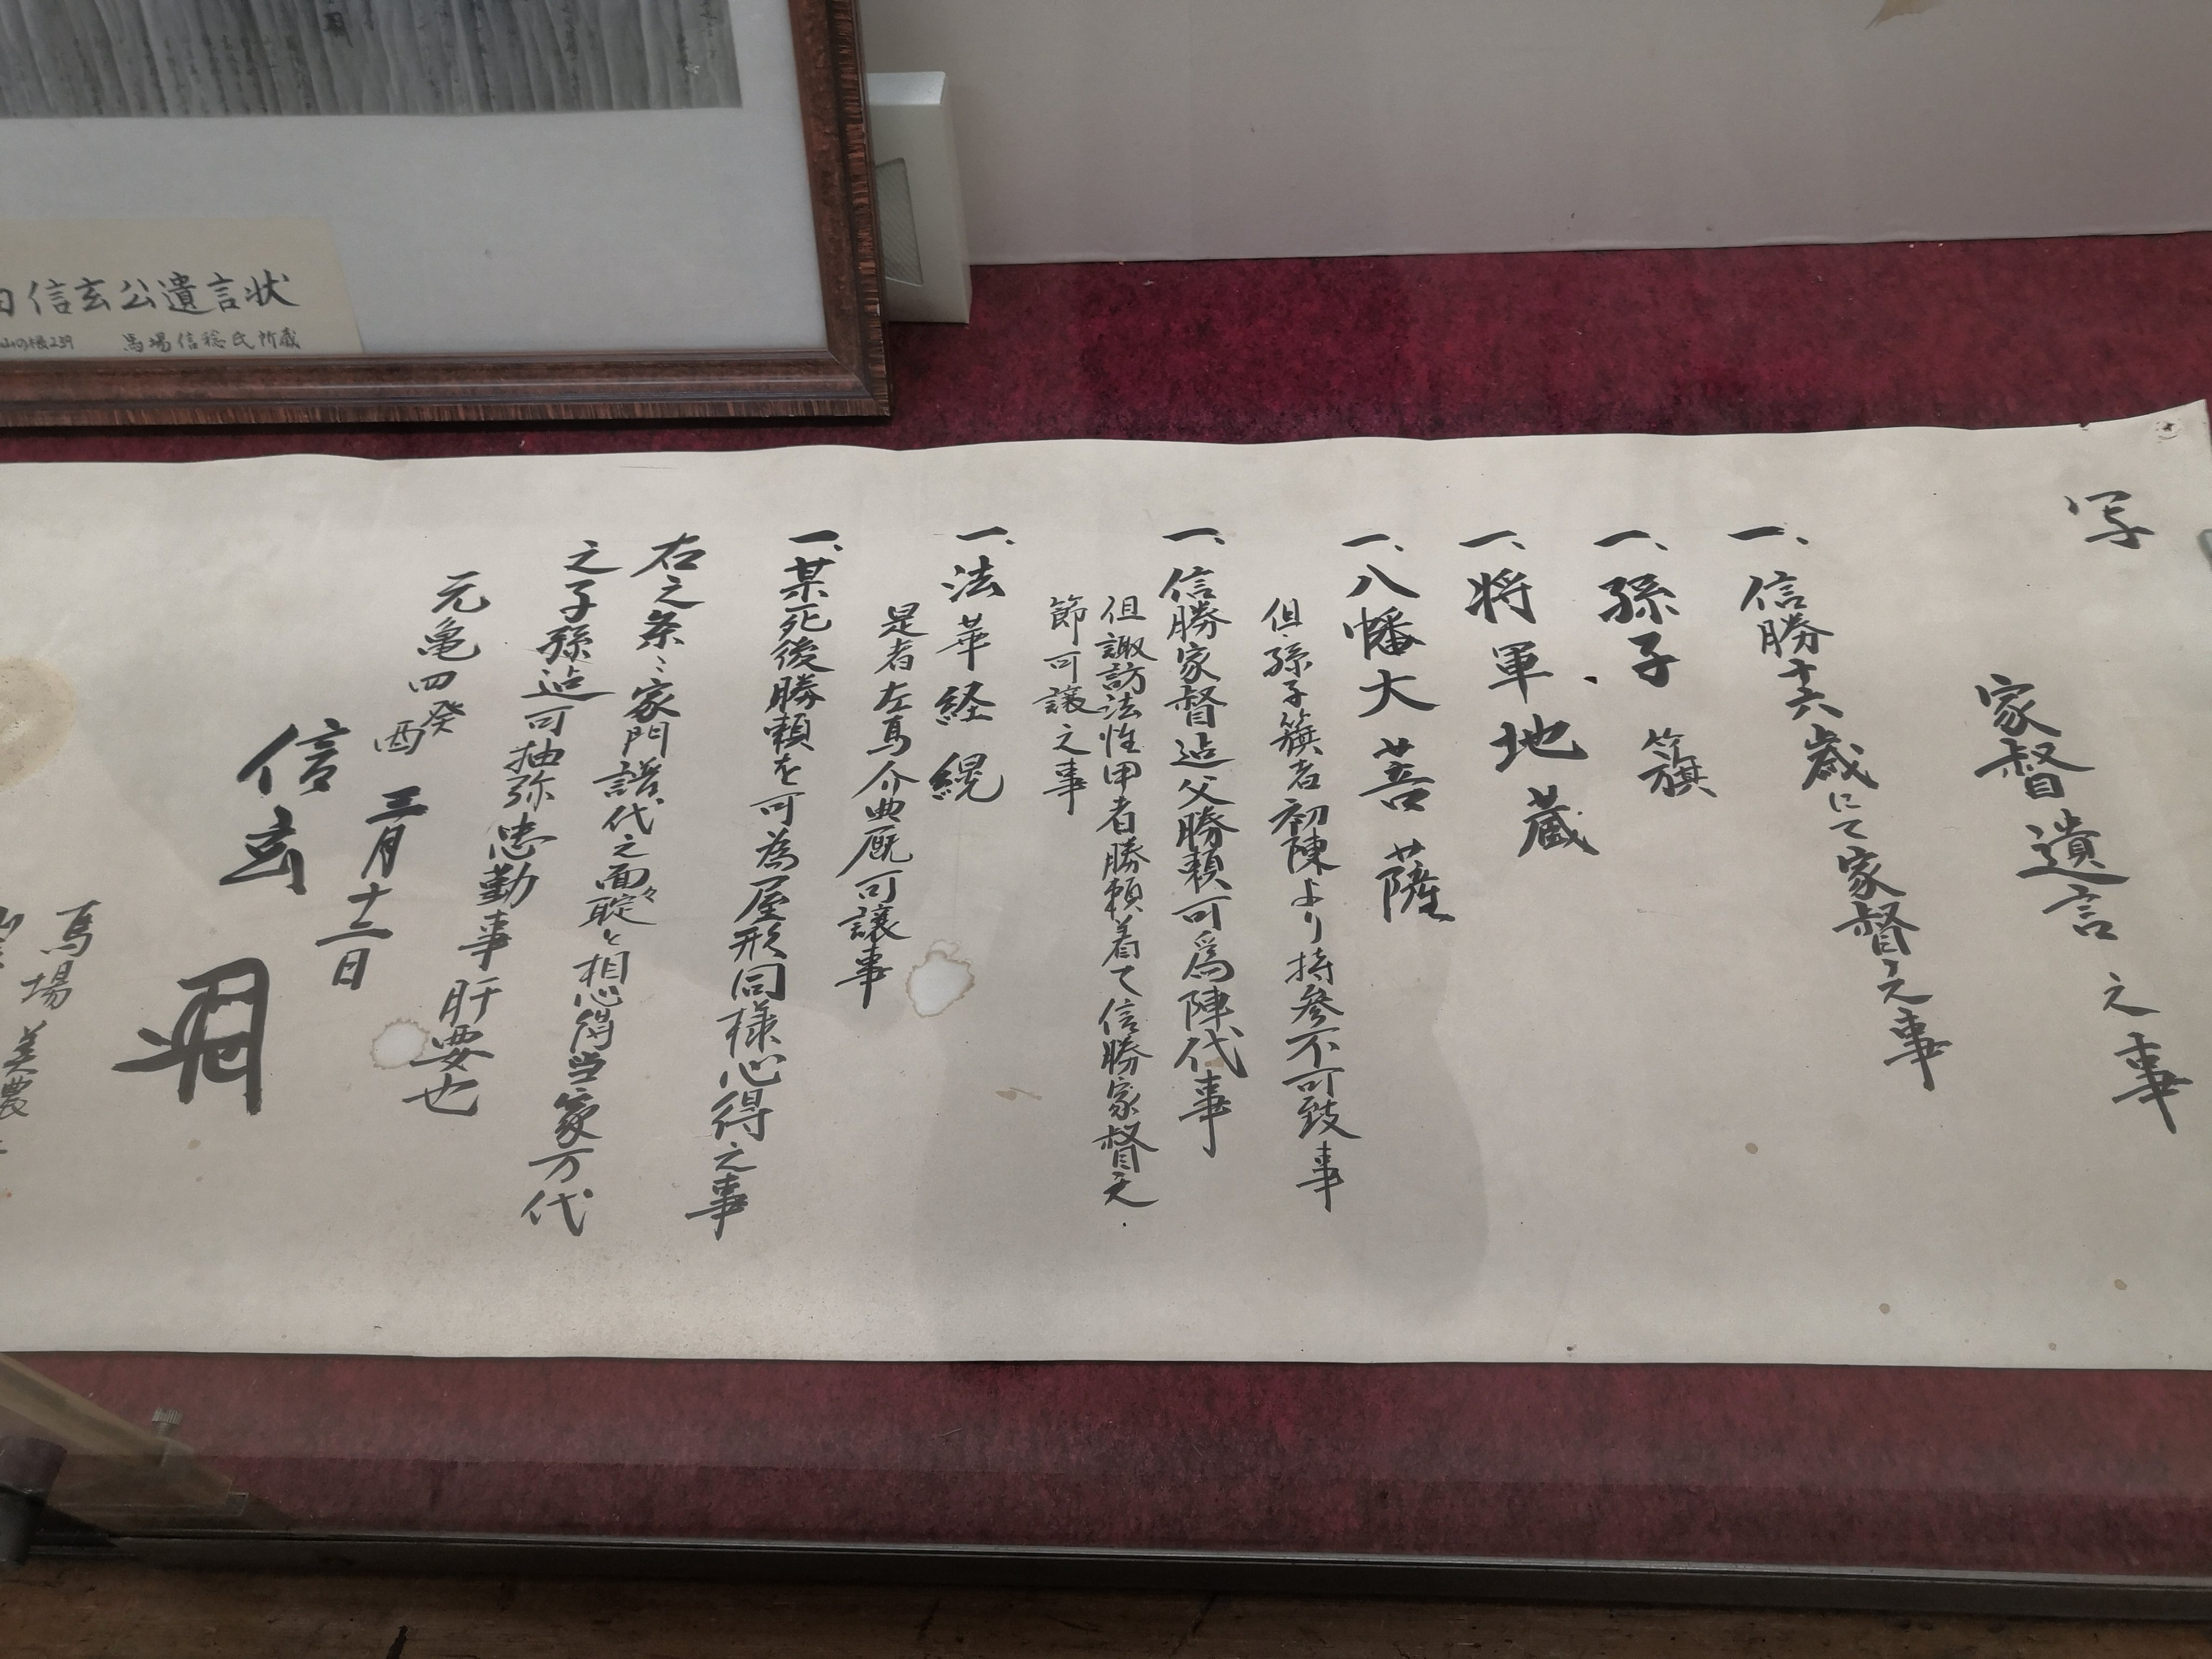 写
家督遺言之事
一、信勝十六歳にて家督之事
一、孫子 籏
一、将軍地蔵
一、八幡大菩薩
但孫子籏者初陳より持参不可致事
一、信勝家督迠父勝頼可為陣代事
但諏訪法性甲者勝頼着て信勝家督之
節可譲之事
一、法華経幌
是者左馬介典厩可譲事
一、某死後勝頼を可為屋形同様心得之事
右之条々家門譜代之面々聢と相心得当家万代
之子孫迠可抽弥忠勤事肝要也
元亀四癸酉 三月十二日
信玄
馬場美農
信玄公遺言状
馬場信稔氏所蔵